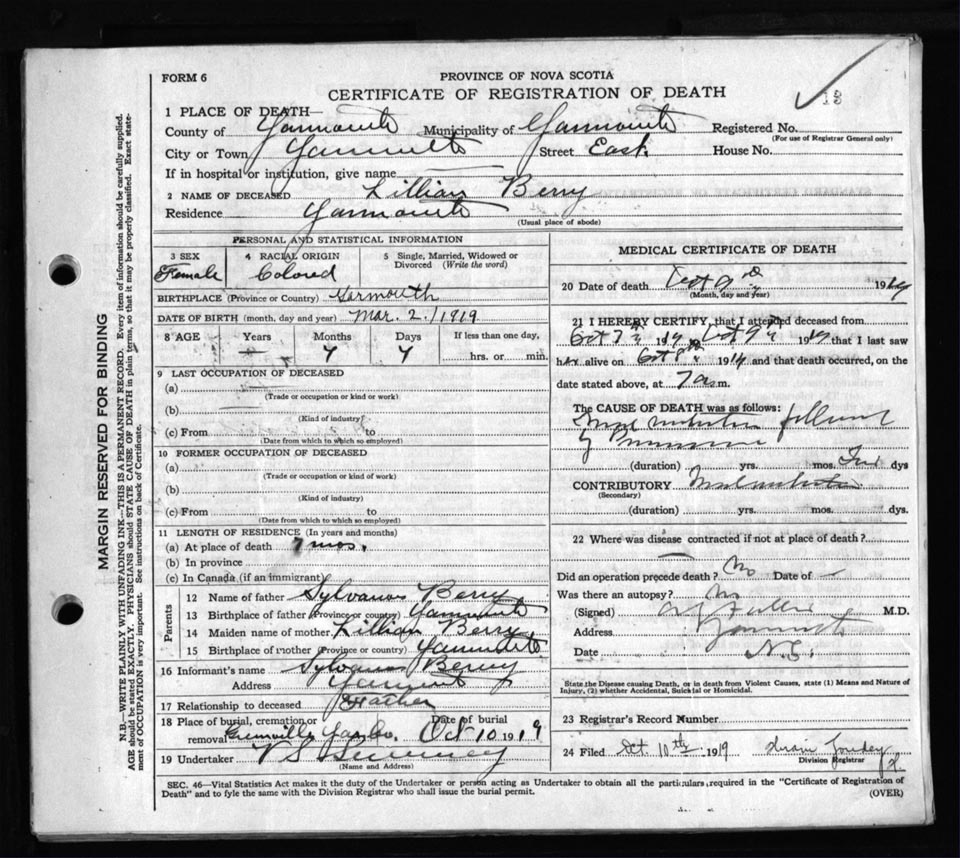 FORM 6
PROVINCE OF NOVA SCOTIA
CERTIFICATE OF REGISTRATION OF DEATH
13
1 PLACE OF DEATH—
County of Yarmouth Municipality of Yarmouth Registered No.
(For use of Registrar General only)
City or Town Yarmouth Street East House No.
If in hospital or institution, give name
2 NAME OF DECEASED Lillian Berry
Residence Yarmouth
(Usual place of abode)
MARGIN RESERVED FOR BINDING
N.B.—WRITE PLAINLY WITH UNFADING INK—THIS IS A PERMANENT RECORD. Every item of information should be carefully supplied.
AGE should be stated EXACTLY. PHYSICIANS should STATE CAUSE OF DEATH in plain terms, so that it may be properly classified. Exact state-
ment of OCCUPATION is very important. See instructions on back of Certificate.
PERSONAL AND STATISTICAL INFORMATION
3 SEX
Female
4 RACIAL ORIGIN
Colored
5 Single, Married, Widowed or
Divorced (Write the word)
BIRTHPLACE (Province or Country) Yarmouth
DATE OF BIRTH (month, day and year) Mar. 2. / 1919
8 AGE Years Months Days If less than one day,
— 7 7 hrs. or min.
9 LAST OCCUPATION OF DECEASED
(a)
(Trade or occupation or kind or work)
(b)
(Kind of industry)
(c) From to
(Date from which so employed)
10 FORMER OCCUPATION OF DECEASED
(a)
(Trade or occupation or kind of work)
(b)
(Kind of industry)
(c) From to
(Date from which so employed)
11 LENGTH OF RESIDENCE (In years and months)
(a) At place of death 7 mos.
(b) In province
(c) In Canada (if an immigrant)
Parents
12 Name of father Sylvanus Berry
13 Birthplace of father (Province or country) Yarmouth
14 Maiden name of mother Lillian Berry
15 Birthplace of mother (Province or country) Yarmouth
16 Informant's name Sylvanus Berry
Address Yarmouth
17 Relationship to deceased Father
18 Place of burial, cremation or Date of burial
removal Greenville Yar. Co. Oct 10 1919
19 Undertaker V S Sweeney
(Name and Address)
MEDICAL CERTIFICATE OF DEATH
20 Date of death Oct 9th 1919
(Month, day and year)
21 I HEREBY CERTIFY, that I attended deceased from
Oct 7th 1919 Oct 9th 1919 that I last saw
her alive on Oct 8th 1919 and that death occurred, on the
date stated above, at 7 a m.
The CAUSE OF DEATH was as follows:
(duration) yrs. mos. dys
CONTRIBUTORY
(Secondary)
(duration) yrs. mos. dys.
22 Where was disease contracted if not at place of death?
—
Did an operation precede death? No Date of —
Was there an autopsy? No
(Signed) M.D.
Address Yarmouth
Date N.S.
State the Disease causing Death, or in death from Violent Causes, state (1) Means and Nature of
Injury, (2) whether Accidental, Suicidal or Homicidal.
23 Registrar's Record Number
24 Filed Oct. 10th 1919
Division Registrar
SEC. 46—Vital Statistics Act makes it the duty of the Undertaker or person acting as Undertaker to obtain all the particulars required in the "Certificate of Registration of
Death" and to fyle the same with the Division Registrar who shall issue the burial permit.
(OVER)